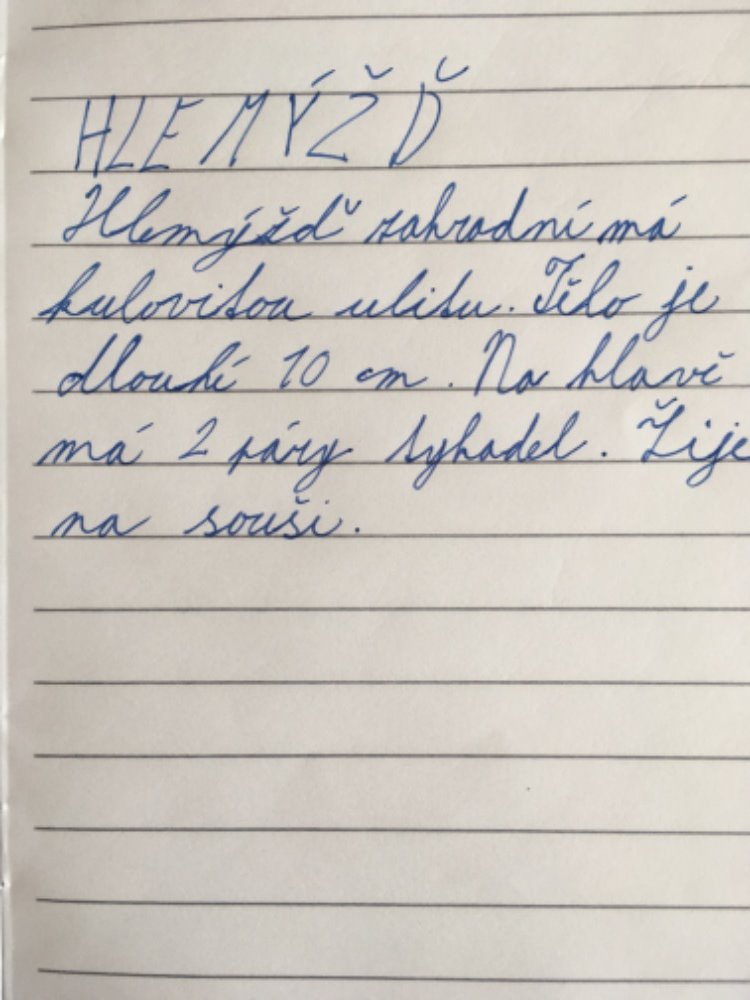 HLEMÝŽĎ
Hlemýžď zahradní má
kulovitou ulitu. Tělo je
dlouhé 10 cm. Na hlavě
má 2 páry tykadel. Žije
na souši.